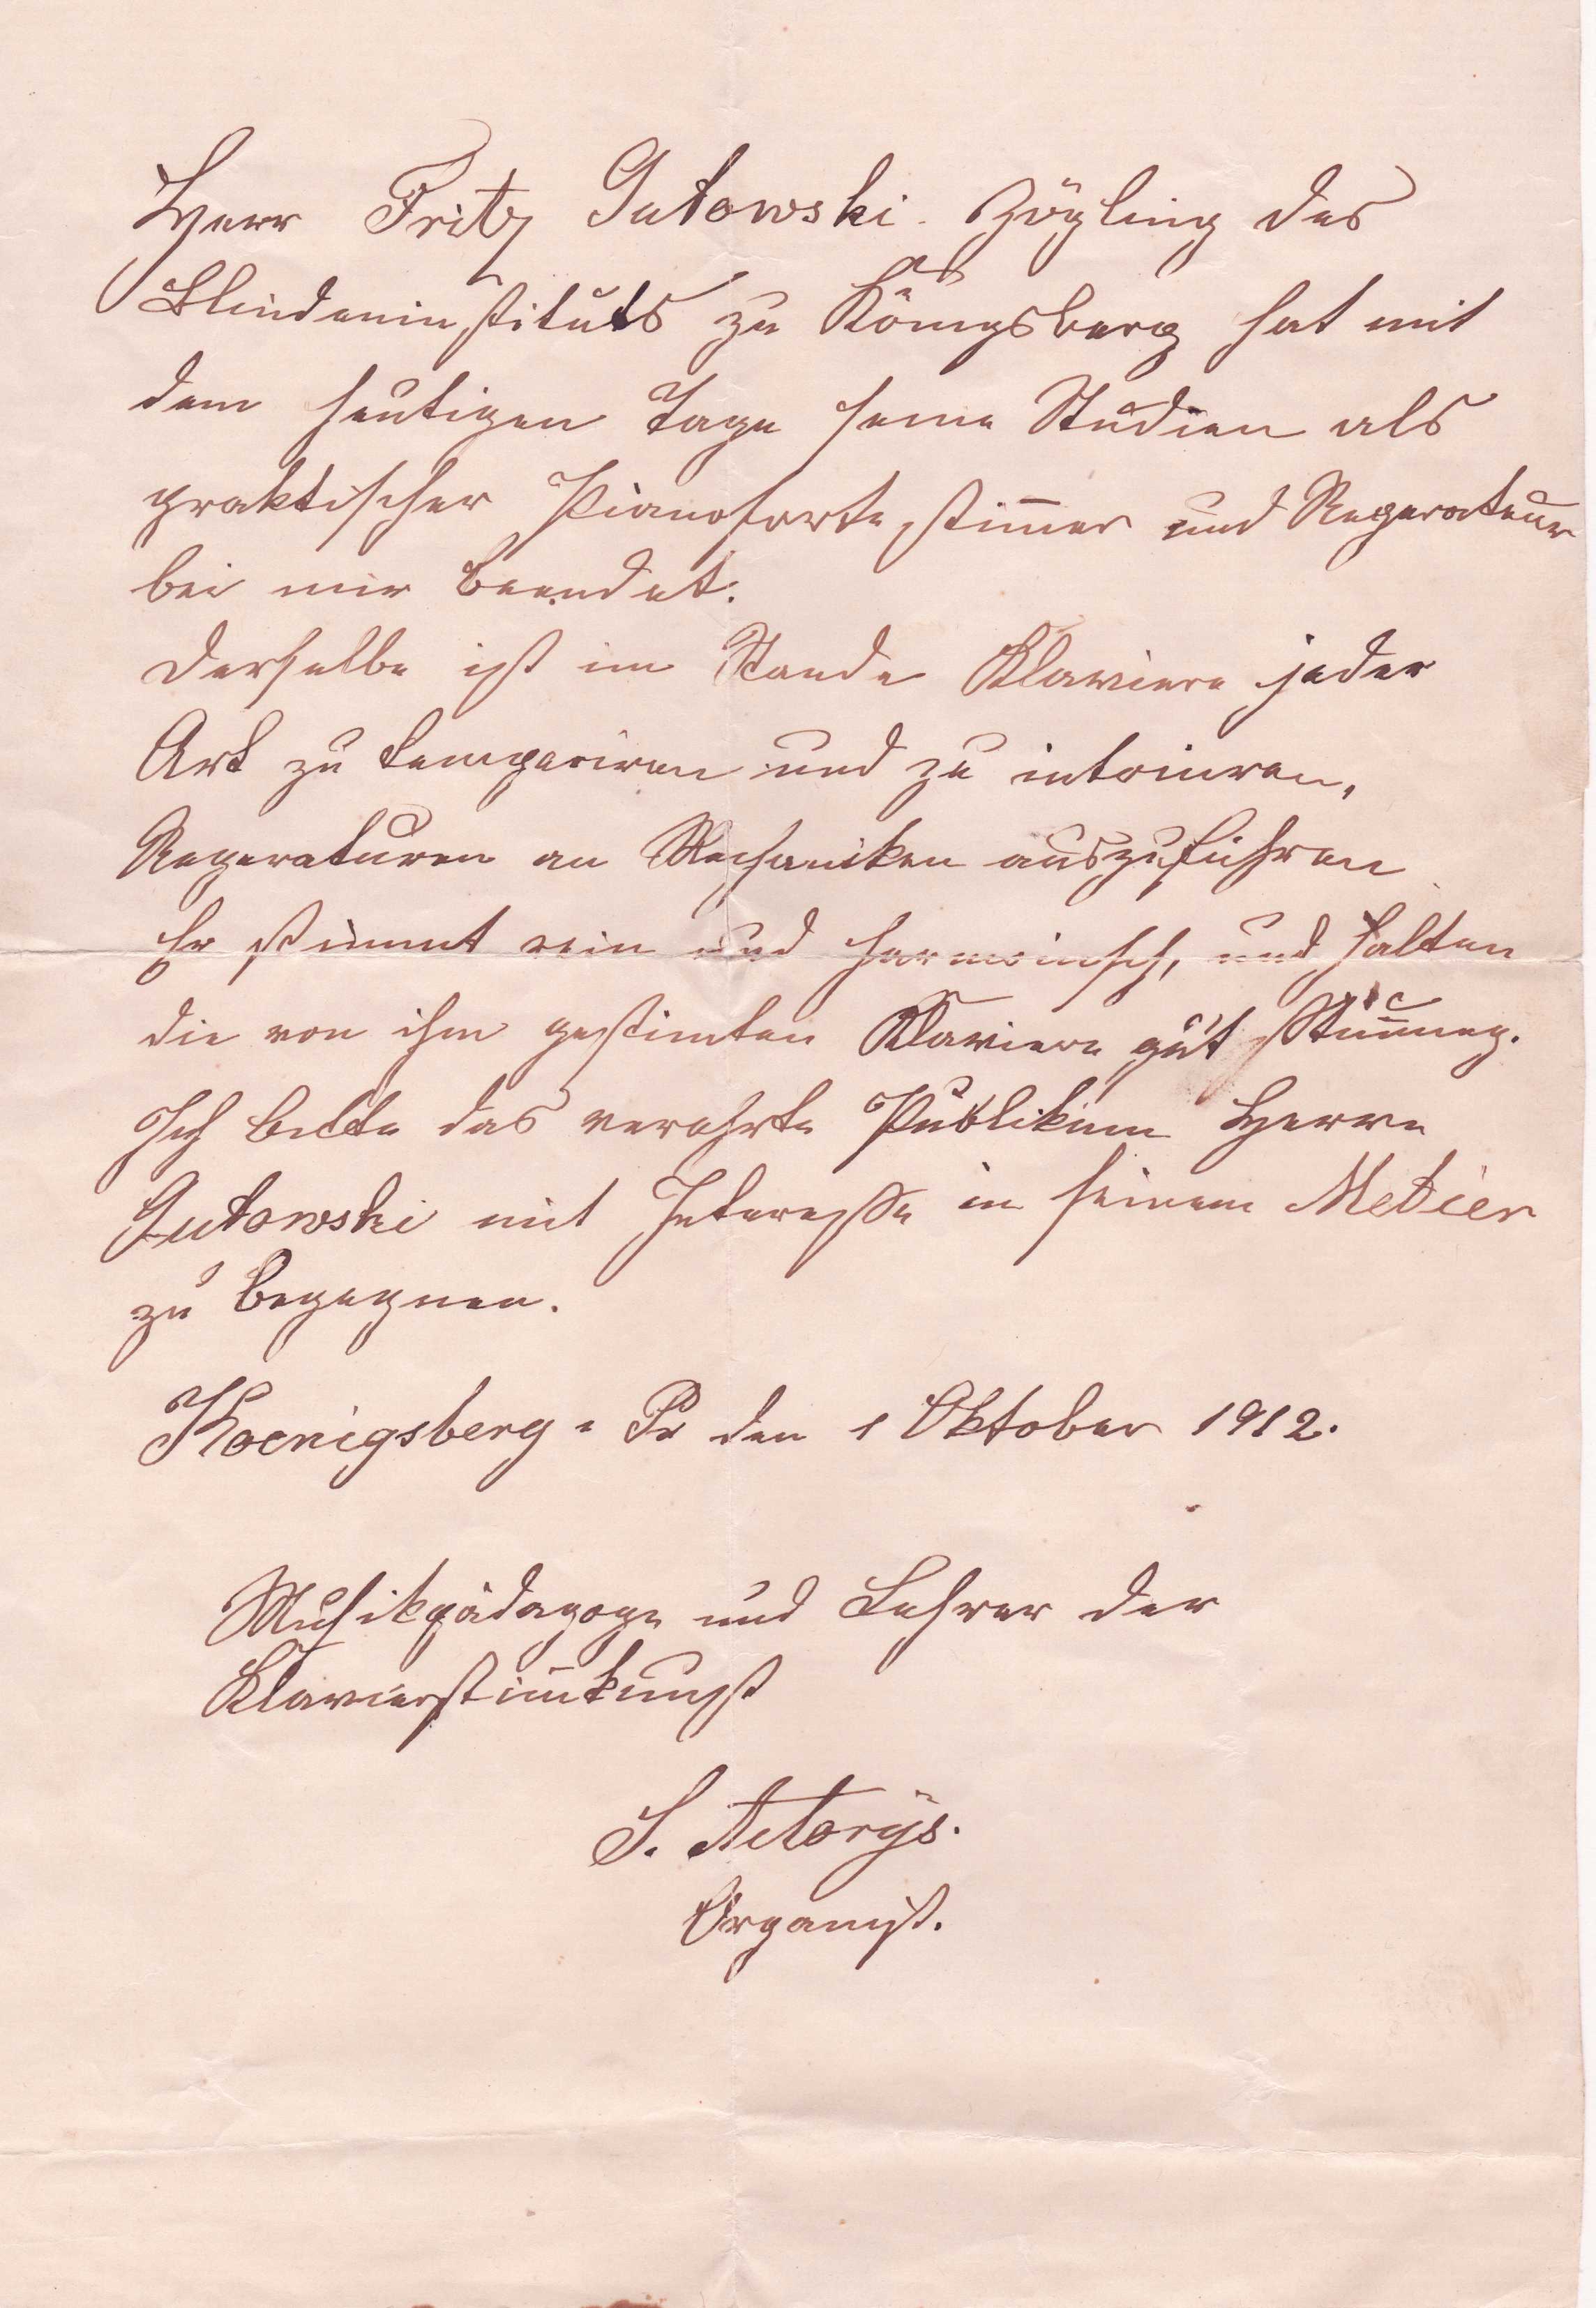 Herr Fritz Gutowski Zögling des
Blindeninstituts zu Königsberg hat mit
dem heutigen Tage seine Studien als
praktischer Pianofortestim̄er und Reperateur
bei mir beendet.
Derselbe ist im Stande Klaviere jeder
Art zu temperiren und zu intoniren,
Reperaturen an Mechaniken auszuführen
Er stimmt rein und harmonisch, und halten
die von ihm gestimten Klaviere gut Stim̄ung.
Ich bitte das verehrte Publikum Herrn
Gutowski mit Interesse in seinem Metier
zu begegnen.
Koenigsberg - Pr den 1 Oktober 1912.
Musikpädagoge und Lehrer der
Klavierstim̄kunst
S. Actorÿs.
Organist.